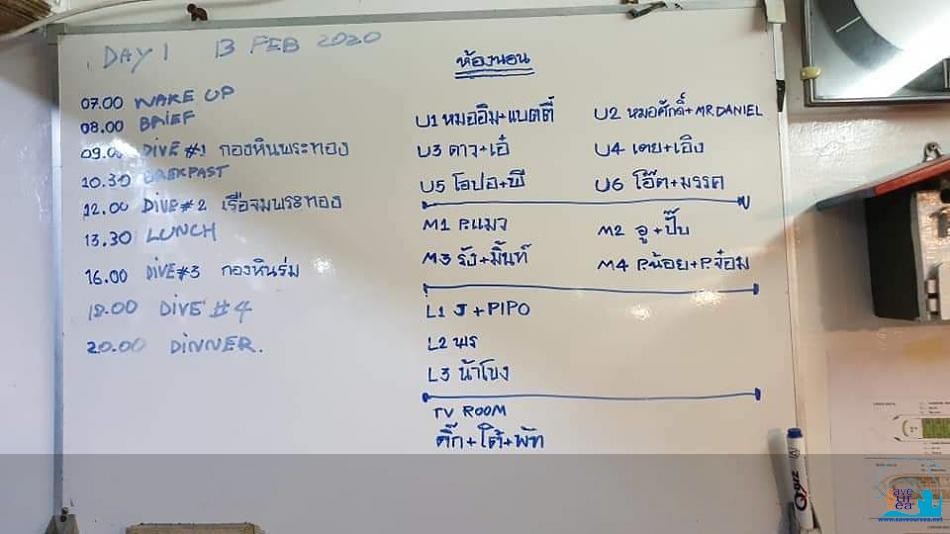 DAY 1 13 FEB 2020
07.00 WAKE UP
08.00 BRIEF
09.00 DIVE #1 กองหินพระทอง
10.30 BREKPAST
12.00 DIVE #2 เรือจมพระทอง
13.30 LUNCH
16.00 DIVE #3 กองหินร่ม
18.00 DIVE #4
20.00 DINNER.
ห้องนอน
U1 หมออิม+แบตตี้
U2 หมอศักดิ์+MR DANIEL
U3 ดาว+เอ๋
U4 เตย+เอิง
U5 โอปอ+พี
U6 โอ๊ต+มรรค
M1 P.แมว
M2 อู+ปั๊บ
M3 รัง+มิ้นท์
M4 P.น้อย+P.จ๋อม
L1 J+PIPO
L2 พร
L3 น้าโขง
TV ROOM
คิ๊ก+โต้+พัท
Q-BIZ
save our sea
www.saveoursea.net